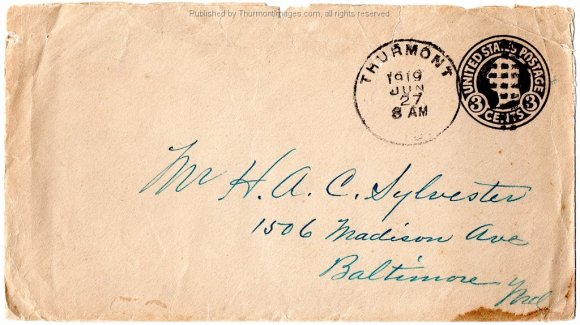 Published by Thurmontimages.com, all rights reserved
THURMONT
1919
JUN
27
8 AM
UNITED STATES POSTAGE
3 CENTS 3
Mr H. A. C. Sylvester
1506 Madison Ave
Baltimore Md